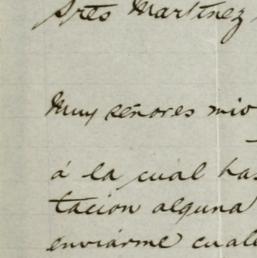 Sres Martínez
Muy señores mio
á la cual has
tacion alguna
enviárme cual